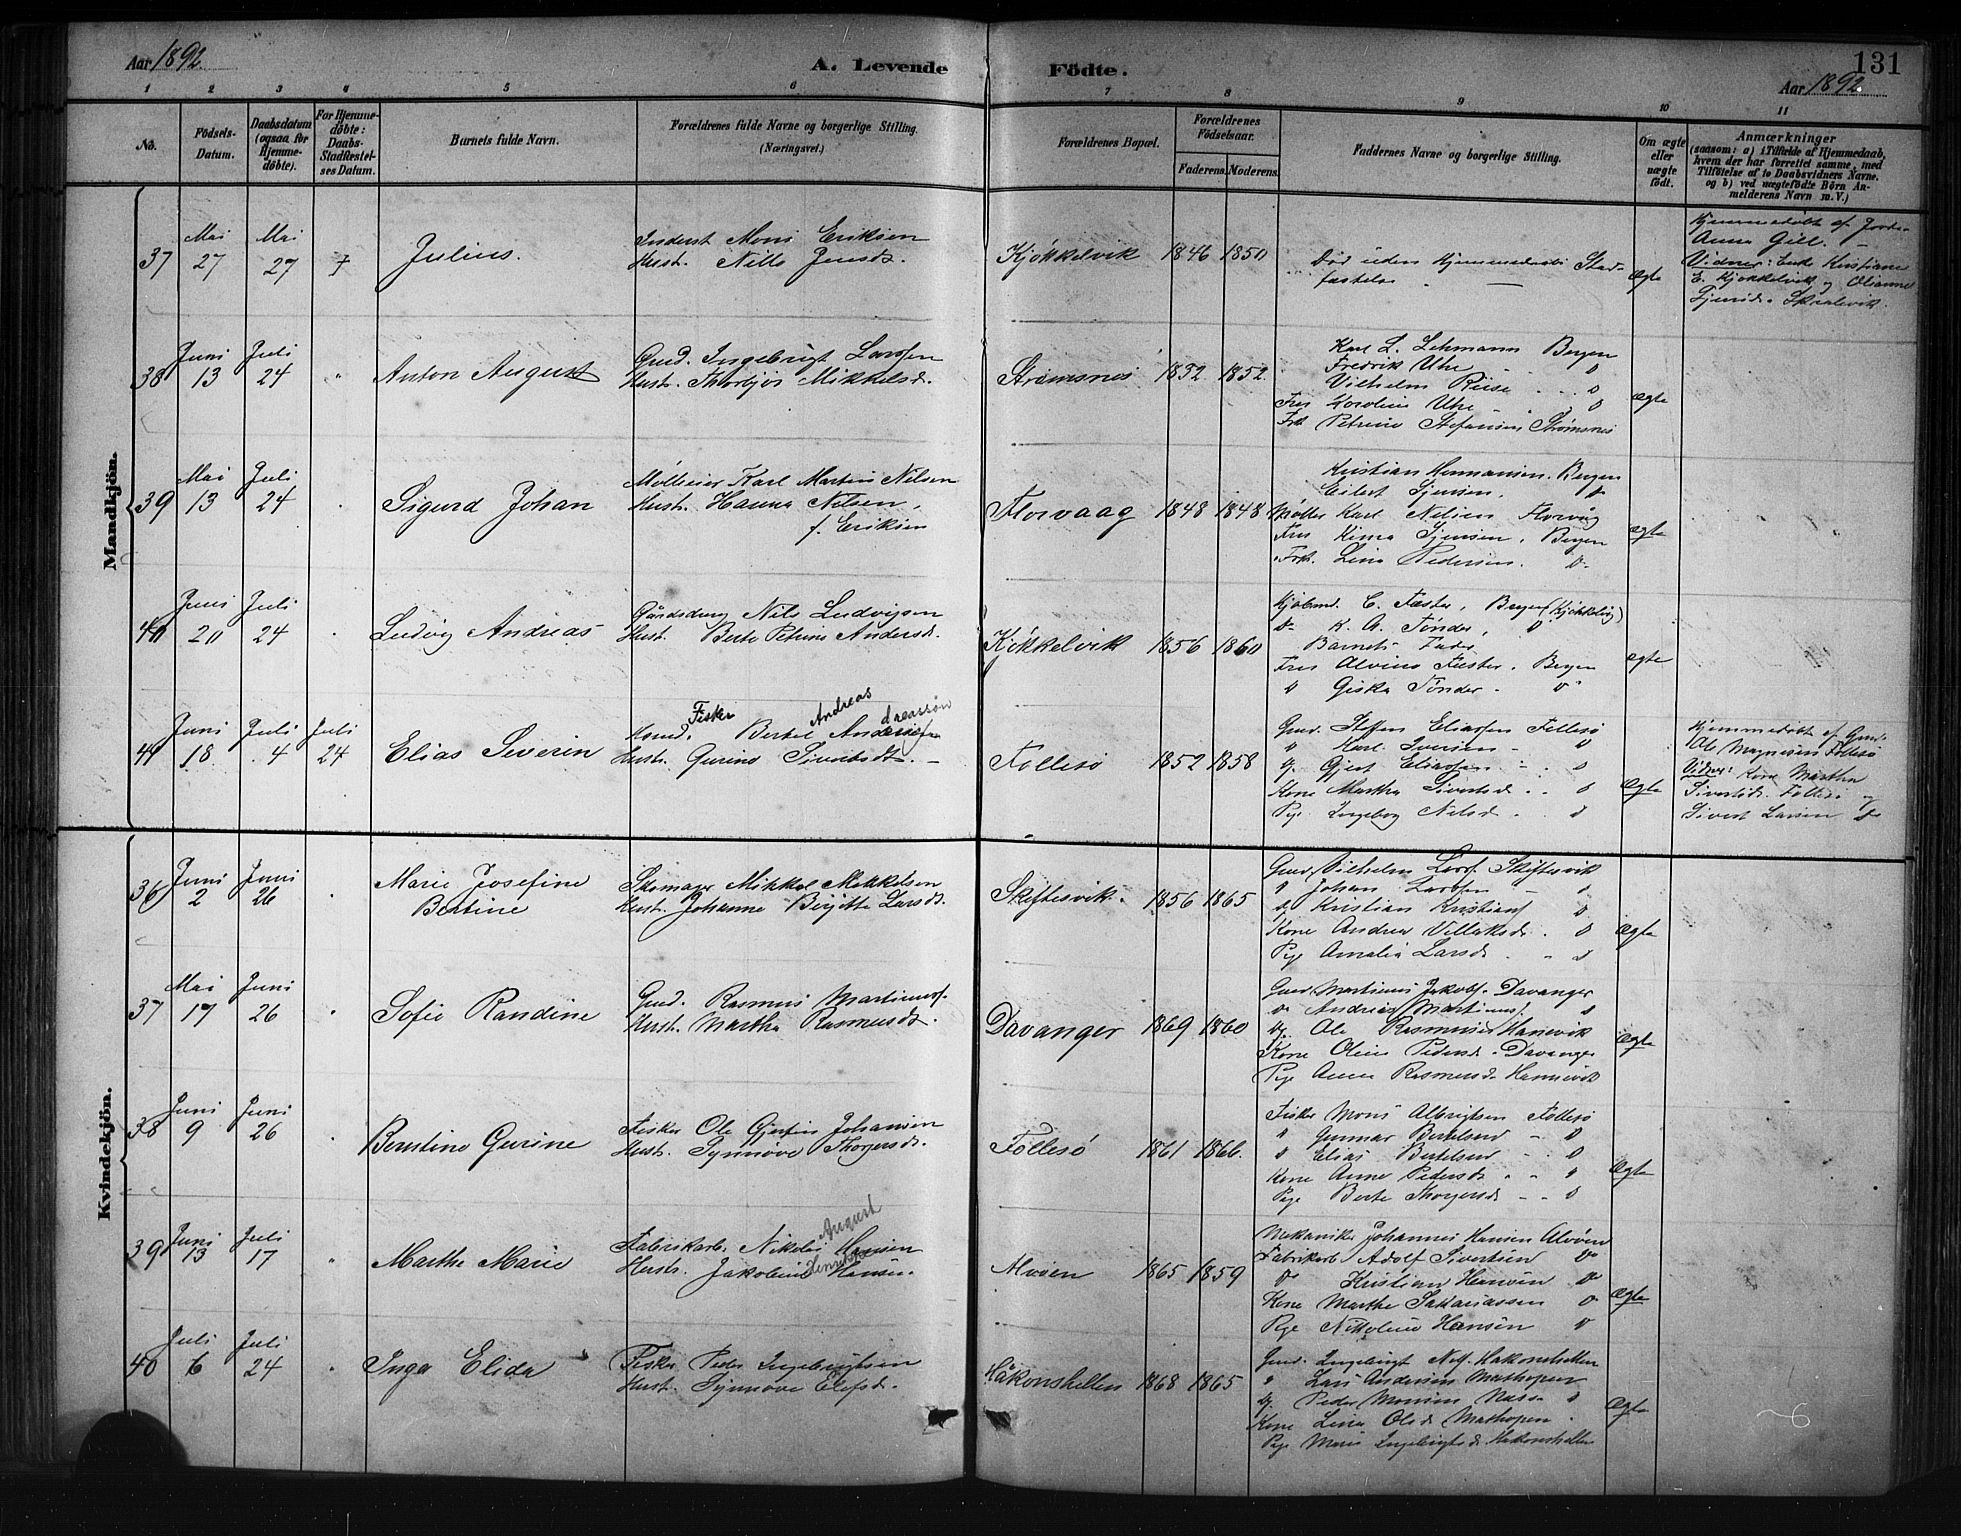 131
Aar 1892
A. Levende Födte.
Aar 1892
1 2 3 4 5 6 7 8 9 10 11
No.
Födsels-Datum.
Daabsdatum (ogsaa for Hjemmedöbte).
For Hjemmedöbte: Daabs-Stadfæstelses Datum.
Barnets fulde Navn.
Forældrenes fulde Navne og borgerlige Stilling. (Næringsvei.)
Forældrenes Bopæl.
Forældrenes Födselsaar.
Faderens. Moderens.
Faddernes Navne og borgerlige Stilling.
Om ægte eller uægte födt.
Anmærkninger
(saasom: a) i Tilfælde af Hjemmedaab, hvem der har forrettet samme, med Tilföielse af to Daabsvidners Navne, og b) ved uægtefödte Börn Anmelderens Navn m. V.)
Mandkjön.
37 Mai 27 Mai 27 † Julius.
Inderst Mons Eriksen
Hust. Nille Jensd.
Kjøkkelvik 1846 1850
Død uden Hjemmedaabs Stadfæstelse
Ægte
Hjemmedøbt af Jordm. Anna Gill. –
Vidner: Enke Kristiane
E. Kjøkkelvik og Olianne
Skaalevik.
38 Juni 13 Juli 24 " Anton August
Gmd. Ingebrigt Larssen
Hust. Thorbjør Mikkelsd.
Strømsnes 1832 1852
Karl L. Lehmann Bergen
Fredrik Uhe
Vilhelm Riise
Fru Karoline Uhe
Frk. Petrine Stefansen Strømsnes
Ægte
39 Mai 13 Juli 24 " Sigurd Johan
Mølleier Karl Martin Nilsen
Hust. Hanna Nilsen,
f. Eriksen
Florvaag 1848 1848
Kristian Hermansen, Bergen
Eilert Sjursen,
Møller Karl Nilsen Florvåg
Fru Sjursen, Bergen
Frk. Lina Pedersen.
Ægte
40 Juni 20 Juli 24 " Ludvig Andreas
Gårdsdreng Nils Ludvigsen
Hust. Berte Petrine Andersd.
Kjøkkelvik 1856 1860
Kjøbmd. C. Faster, Bergen (Kjøkkelvig)
K. A. Tønder,
Barnets Fader
Fru Alvina Faster. Bergen
Giska Tønder.
Ægte
41 Juni 18 Juli 4 Juli 24 Elias Severin
Fisker Andreas
Bertel
Hust. Gurine Sivertsdt. –
Follesø 1852 1858
Gmd. Steffen Eliassen Follesø
" Karl Iversen
Gjert Eliassen
Kone Martha Sivertsd.
Pige Ingeborg Nilsd.
Ægte
Hjemmedøbt af Gmd.
Ole Magnesen Follesø
Vidner: Kone Martha
Sivertsd. Follesø og
Sivert Larsen
Kvindekjön.
36 Juni 2 Juni 26 " Marie Josefine
Bertine
Skomager Mikkel Mikkelsen
Hust. Johanne Birgitte Larsdt.
Skiftesvik. 1856 1865
Gmd. Vilhelm Larss. Skiftesvik
Johan Larssen
Kristian Kristians.
Kone Andrea Villaksd.
Pige Amalia Larsd.
Ægte
37 Mai 17 Juni 26 " Sofie Randine
Gmd. Rasmus Martinuss.
Hust. Martha Rasmusdt.
Davanger 1869 1860
Gmd. Martinus Jakobs. Davanger
Andreas Martinuss.
Ole Rasmusen Hanevik
Kone Oline Pedersd. Davanger
Pige Anna Rasmusd. Hannevik
Ægte
38 Juni 9 Juni 26 " Berntine Gurine
Fisker Ole Gjertin Johansen
Hust. Synnøve Thorgersdt.
Follesø 1861 1866.
Fisker Mons Albrigtsen Follesø
" Gunnar Bertelsen
Elias Bertelsen
Kone Anne Pedersdt.
Pige Berte Thorgersdt
Ægte
39 Juni 13 Juli 17 " Marthe Marie
August
Fabrikarb. Nikolai Hansen
Hust. Jakobine Hansen.
Alvøen 1865 1859
Mekaniker Johannes Hansen Alvøen
Fabrikarb Adolf Sivertsen
Kristian Hansen
Kone Marthe Sakariassen
Pige Nikoline Hansen
Ægte
40 Juli 6 Juli 24 " Inga Elida
Fisker Peder Ingebrigtsen
Hust. Synnøve Elefsd.
Håkonshellen 1868 1865
Gmd. Ingebrigt Nils. Hakonshellen
" Lars Andersen Mathopen
Peder Monsen
Kone Lina Olsd Mathopen
Pige Maris Ingebrigtsd. Hakonshellen
Ægte